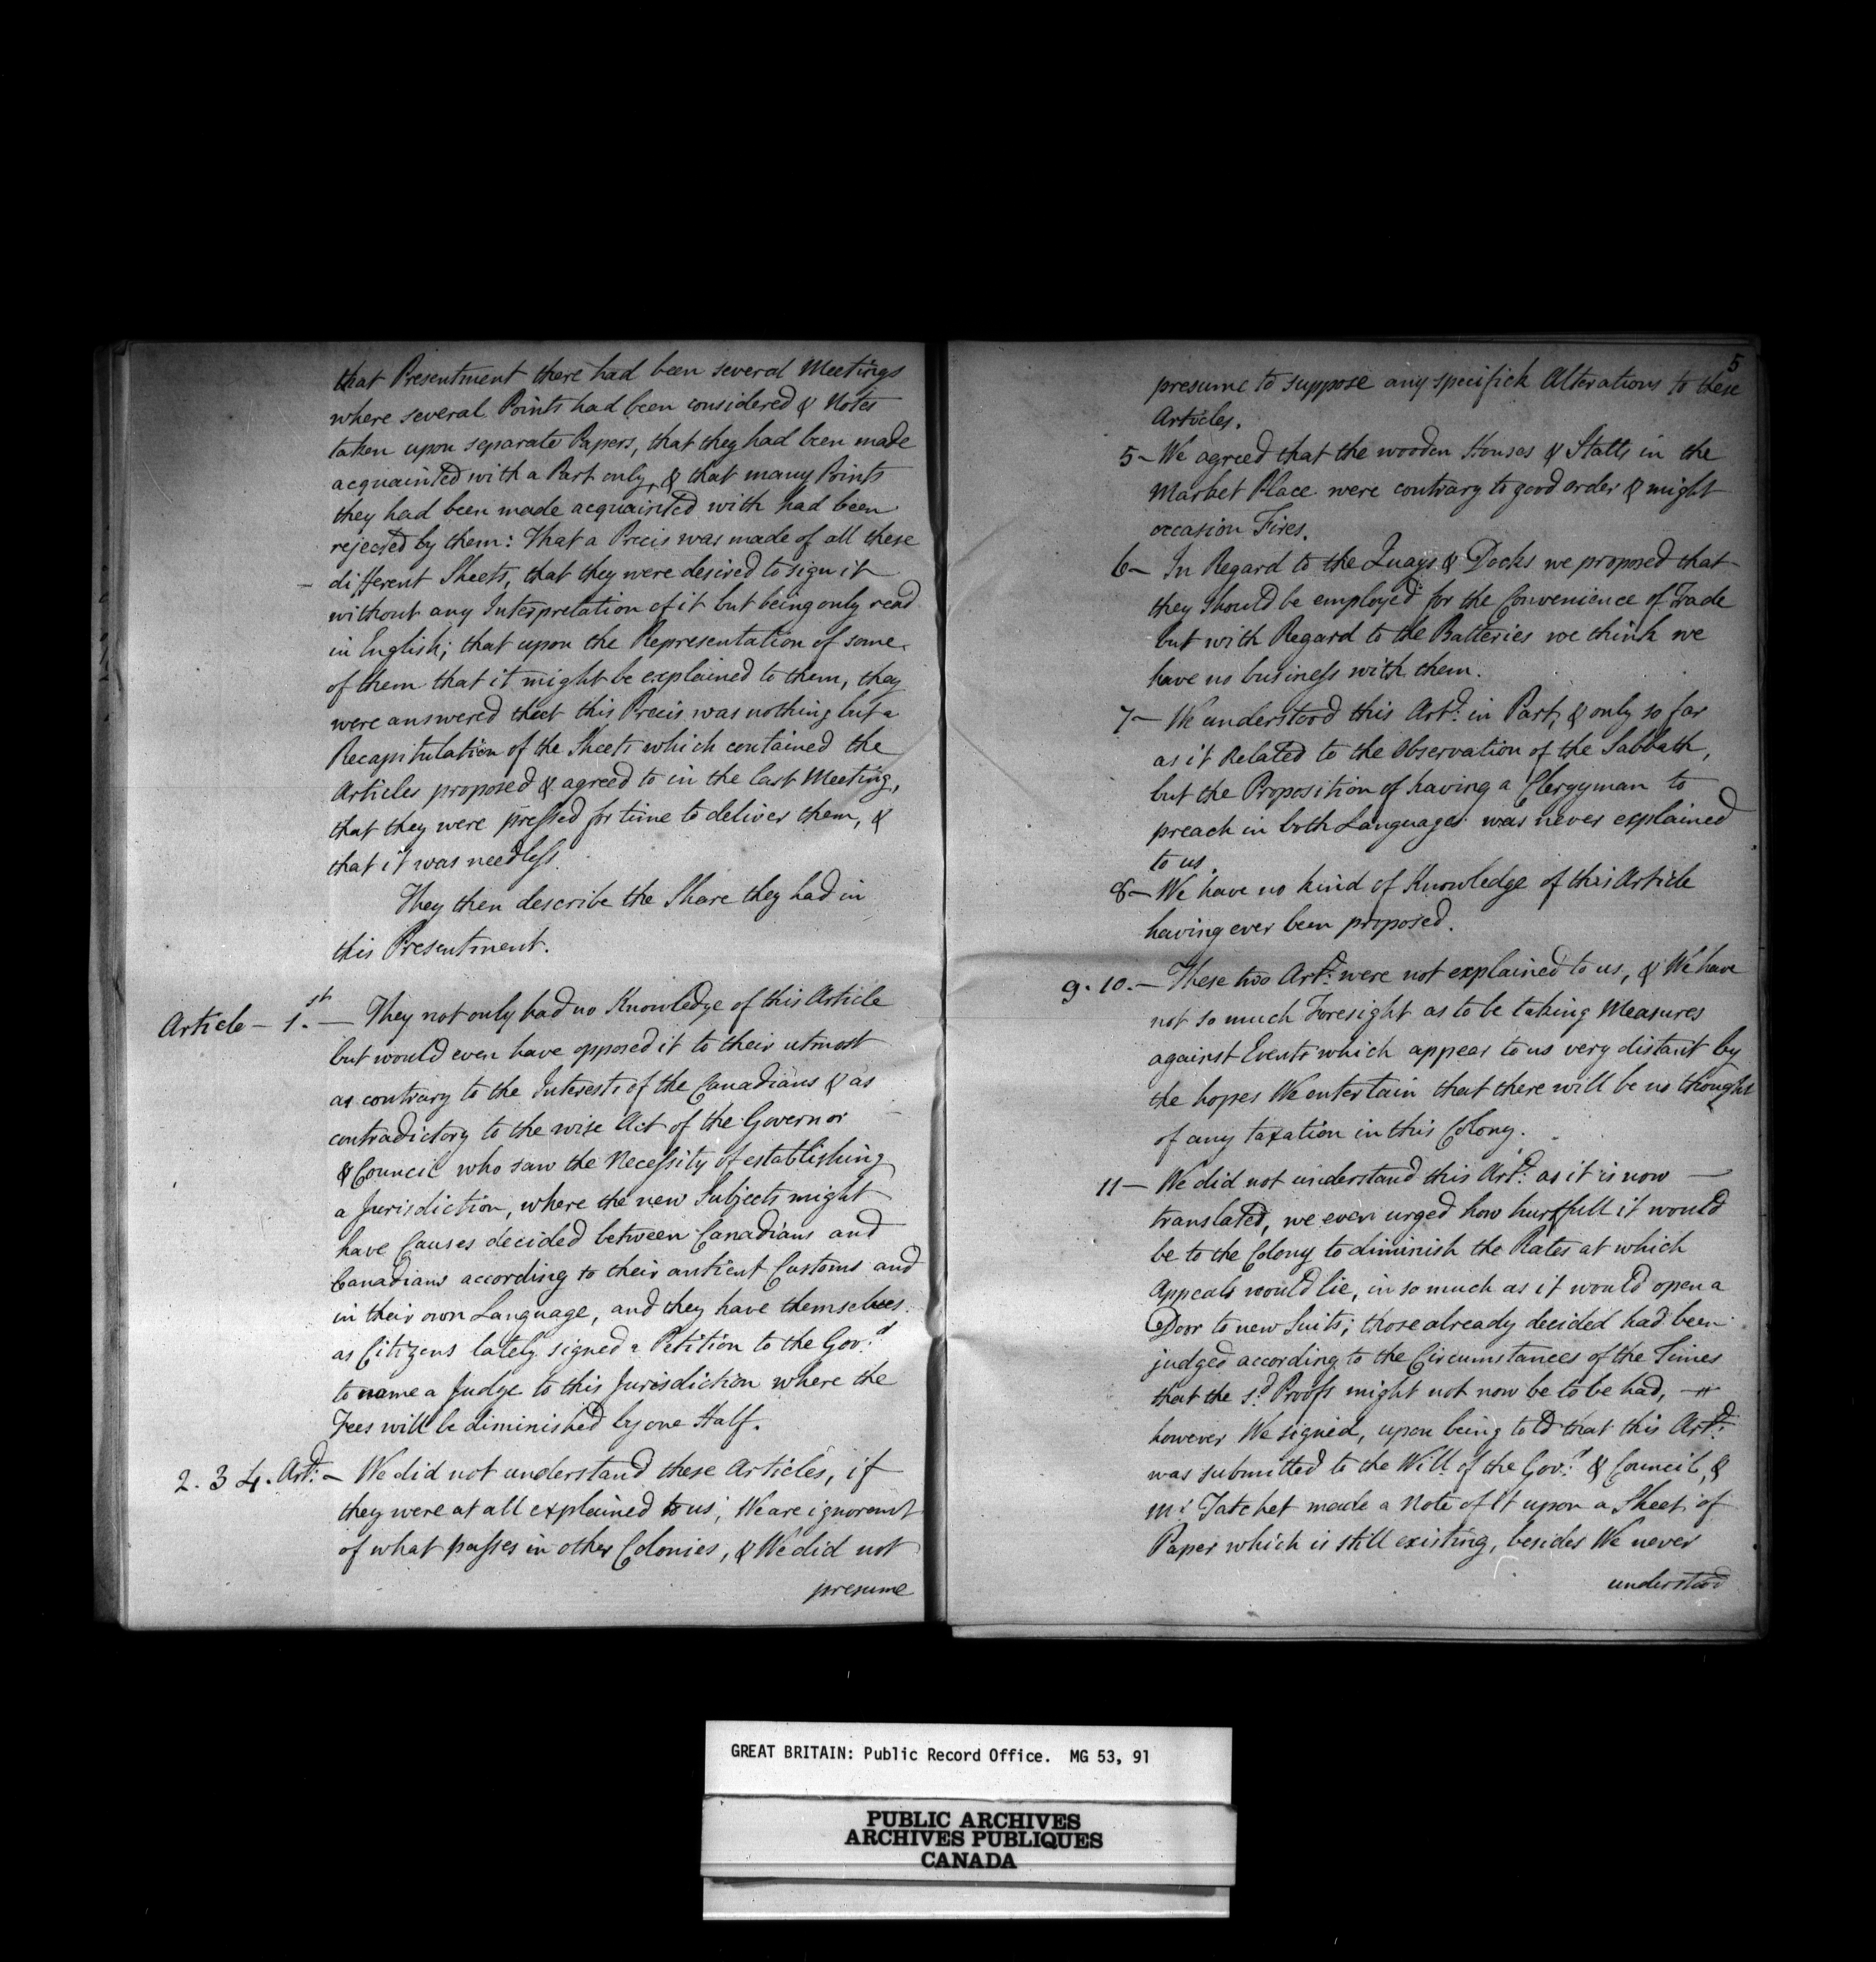 that Presentment there had been several Meetings
where several Points had been considered & Notes
taken upon separate Papers, that they had been made
acquainted with a Part only, & that many Points
they had been made acquainted with had been
rejected by them: That a Precis was made of all these
different Sheets, that they were desired to sign it
without any Interpretation of it but being only read
in English; that upon the Representation of some
of them that it might be explained to them, they
were answered that this Precis was nothing but a
Recapitulation of the Sheets which contained the
Articles proposed & agreed to in the last Meeting,
that they were pressed for time to deliver them, &
that it was needless.
They then describe the Share they had in
this Presentment.
Article - 1.st — They not only had no Knowledge of this Article
but would even have opposed it to their utmost
as contrary to the Interests of the Canadians & as
contradictory to the wise Act of the Governor
& Council who saw the Necessity of establishing
a Jurisdiction, where the new Subjects might
have Causes decided between Canadians and
Canadians according to their antient Customs and
in their own Language, and they have themselves
as Citizens lately signed a Petition to the Gov.r
to name a Judge to this Jurisdiction where the
Fees will be diminished by one Half.
2. 3 4. Art: - We did not understand these Articles, if
they were at all explained to us; We are ignorant
of what passes in other Colonies, & We did not
presume
5
presume to suppose any specifick Alterations to these
Articles.
5 - We agreed that the wooden Houses & Stalls in the
Market Place were contrary to good order & might
occasion Fires.
6 - In Regard to the Quays & Docks we proposed that
they should be employed for the Convenience of Trade
but with Regard to the Batteries we think we
have no business with them.
7 - We understood this Art: in Part, & only so far
as it Related to the Observation of the Sabbath,
but the Proposition of having a Clergyman to
preach in both Languages was never explained
to us.
8 - We have no kind of Knowledge of this Article
having ever been proposed.
9. 10. - These two Art: were not explained to us, & We have
not so much Foresight as to be taking Measures
against Events which appear to us very distant by
the hopes We entertain that there will be no thought
of any taxation in this Colony.
11 - We did not understand this Art: as it is now
translated, we even urged how hurtfull it would
be to the Colony to diminish the Rates at which
Appeals would lie, in so much as it would open a
Door to new Suits; those already decided had been
judged according to the Circumstances of the Times
that the s.d Proofs might not now be to be had,
however We signed, upon being told that this Art:
was submitted to the Will of the Gov.r & Council, &
M.r Tatchet made a Note of it upon a Sheet of
Paper which is still existing, besides We never
understood
GREAT BRITAIN: Public Record Office. MG 53, 91
PUBLIC ARCHIVES
ARCHIVES PUBLIQUES
CANADA